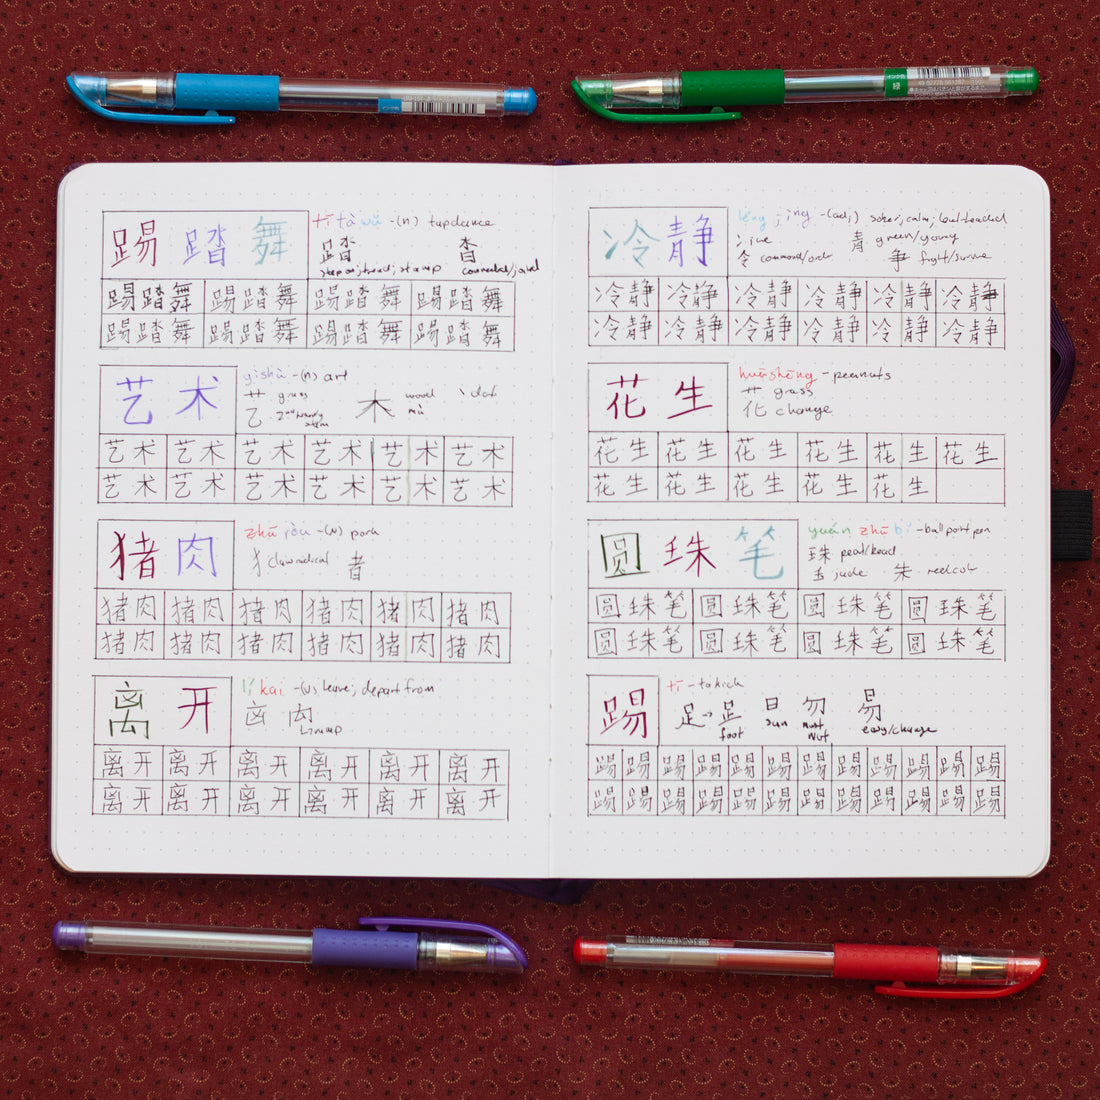 踢 踏 舞 tī tà wǔ -(n) tapdance
踏 沓
step on; tread; stamp connected/joined
踢踏舞 踢踏舞 踢踏舞 踢踏舞
踢踏舞 踢踏舞 踢踏舞 踢踏舞
艺 术 yìshù -(n) art
艹 grass 木 wood 丶 dot
乙 2nd heavenly stem mù
艺术 艺术 艺术 艺术 艺术 艺术
艺术 艺术 艺术 艺术 艺术 艺术
猪 肉 zhū ròu -(n) pork
犭 claw radical 者
猪肉 猪肉 猪肉 猪肉 猪肉 猪肉
猪肉 猪肉 猪肉 猪肉 猪肉 猪肉
离 开 lí kai -(v) leave; depart from
离开 离开 离开 离开 离开 离开
离开 离开 离开 离开 离开 离开
冷 静 lěng jìng -(adj) sober, calm; cool-headed
冫 ice 青 green/young
令 command/order 争 fight/survive
冷静 冷静 冷静 冷静 冷静 冷静
冷静 冷静 冷静 冷静 冷静 冷静
花 生 huāshēng - peanuts
艹 grass
化 change
花生 花生 花生 花生 花生 花生
花生 花生 花生 花生 花生
圆 珠 笔 yuán zhū bǐ - ballpoint pen
珠 pearl/bead
jade 朱 red
圆珠笔 圆珠笔 圆珠笔 圆珠笔
圆珠笔 圆珠笔 圆珠笔 圆珠笔
踢 tī - to kick
足 → 日 勿 易
foot sun must not easy/change
踢 踢 踢 踢 踢 踢 踢 踢 踢 踢 踢 踢
踢 踢 踢 踢 踢 踢 踢 踢 踢 踢 踢 踢
緑